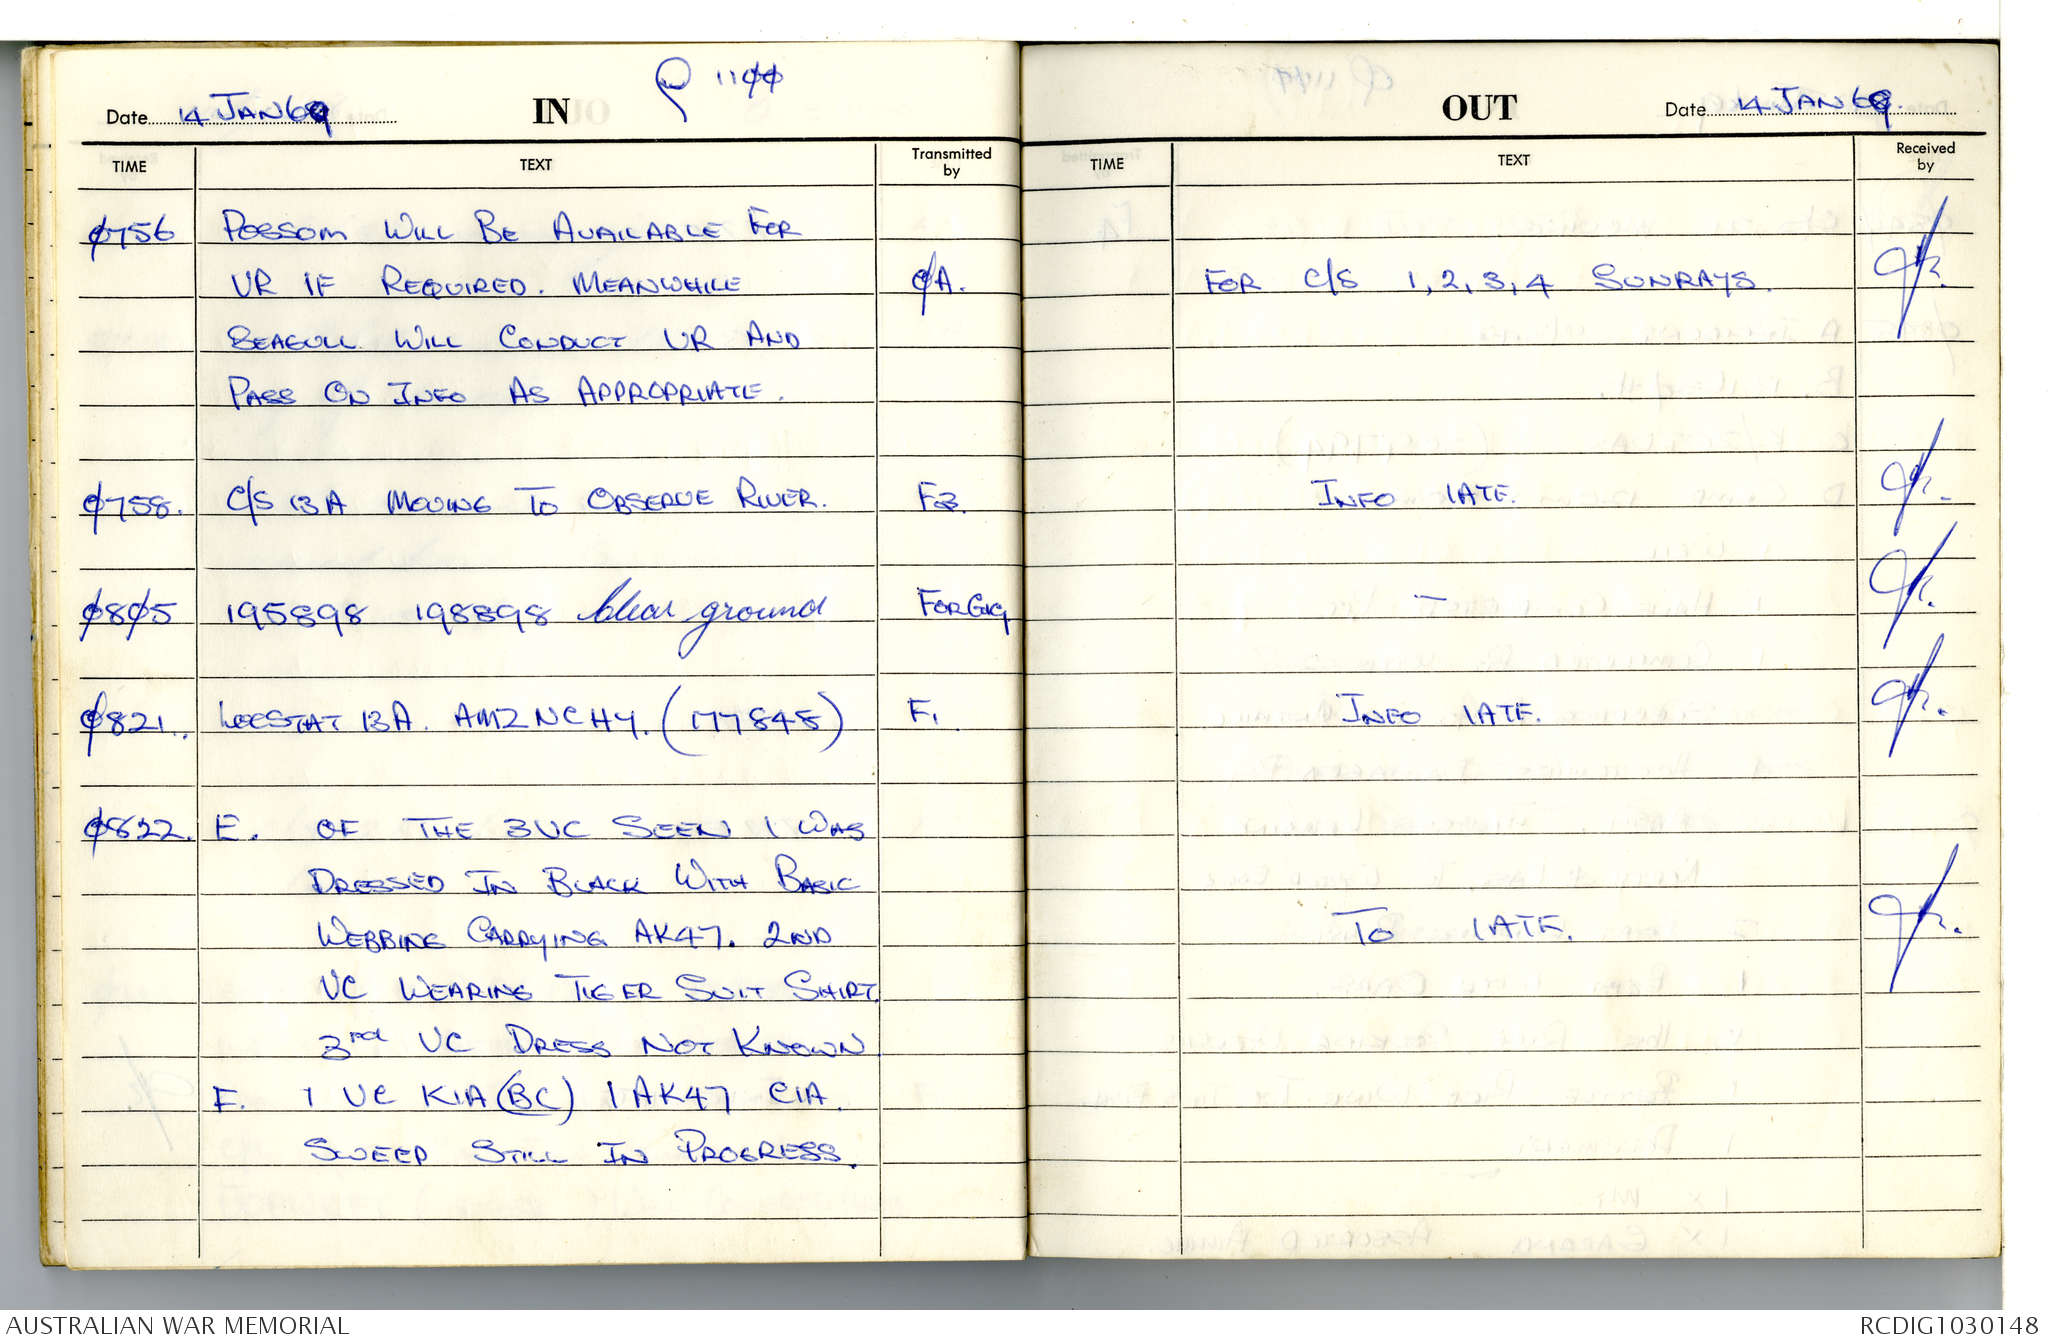 Date 14 JAN 69 IN 1100
TIME TEXT Transmitted by
0756 POSSOM WILL BE AVAILABLE FOR
VR IF REQUIRED. MEANWHILE 0A.
SEAGULL WILL CONDUCT VR AND
PASS ON INFO AS APPROPRIATE.
0758. C/S 13A MOVING TO OBSERVE RIVER. F3.
0805 195898 198898 clear ground
0821. LOCSTAT 13A. AMZNCHY. (177848) F1
0822. E. OF THE 3 VC SEEN 1 WAS
DRESSED IN BLACK WITH BASIC
WEBBING CARRYING AK47. 2ND
VC WEARING TIGER SUIT SHIRT.
3rd VC DRESS NOT KNOWN
F. 1 VC KIA (BC) 1 AK47 CIA.
SWEEP STILL IN PROGRESS.
OUT Date 14 JAN 69.
TIME TEXT Received by
FOR C/S 1, 2, 3, 4 SUNRAYS.
INFO LATE.
—
INFO LATE.
TO LATE.
AUSTRALIAN WAR MEMORIAL RCDIG1030148